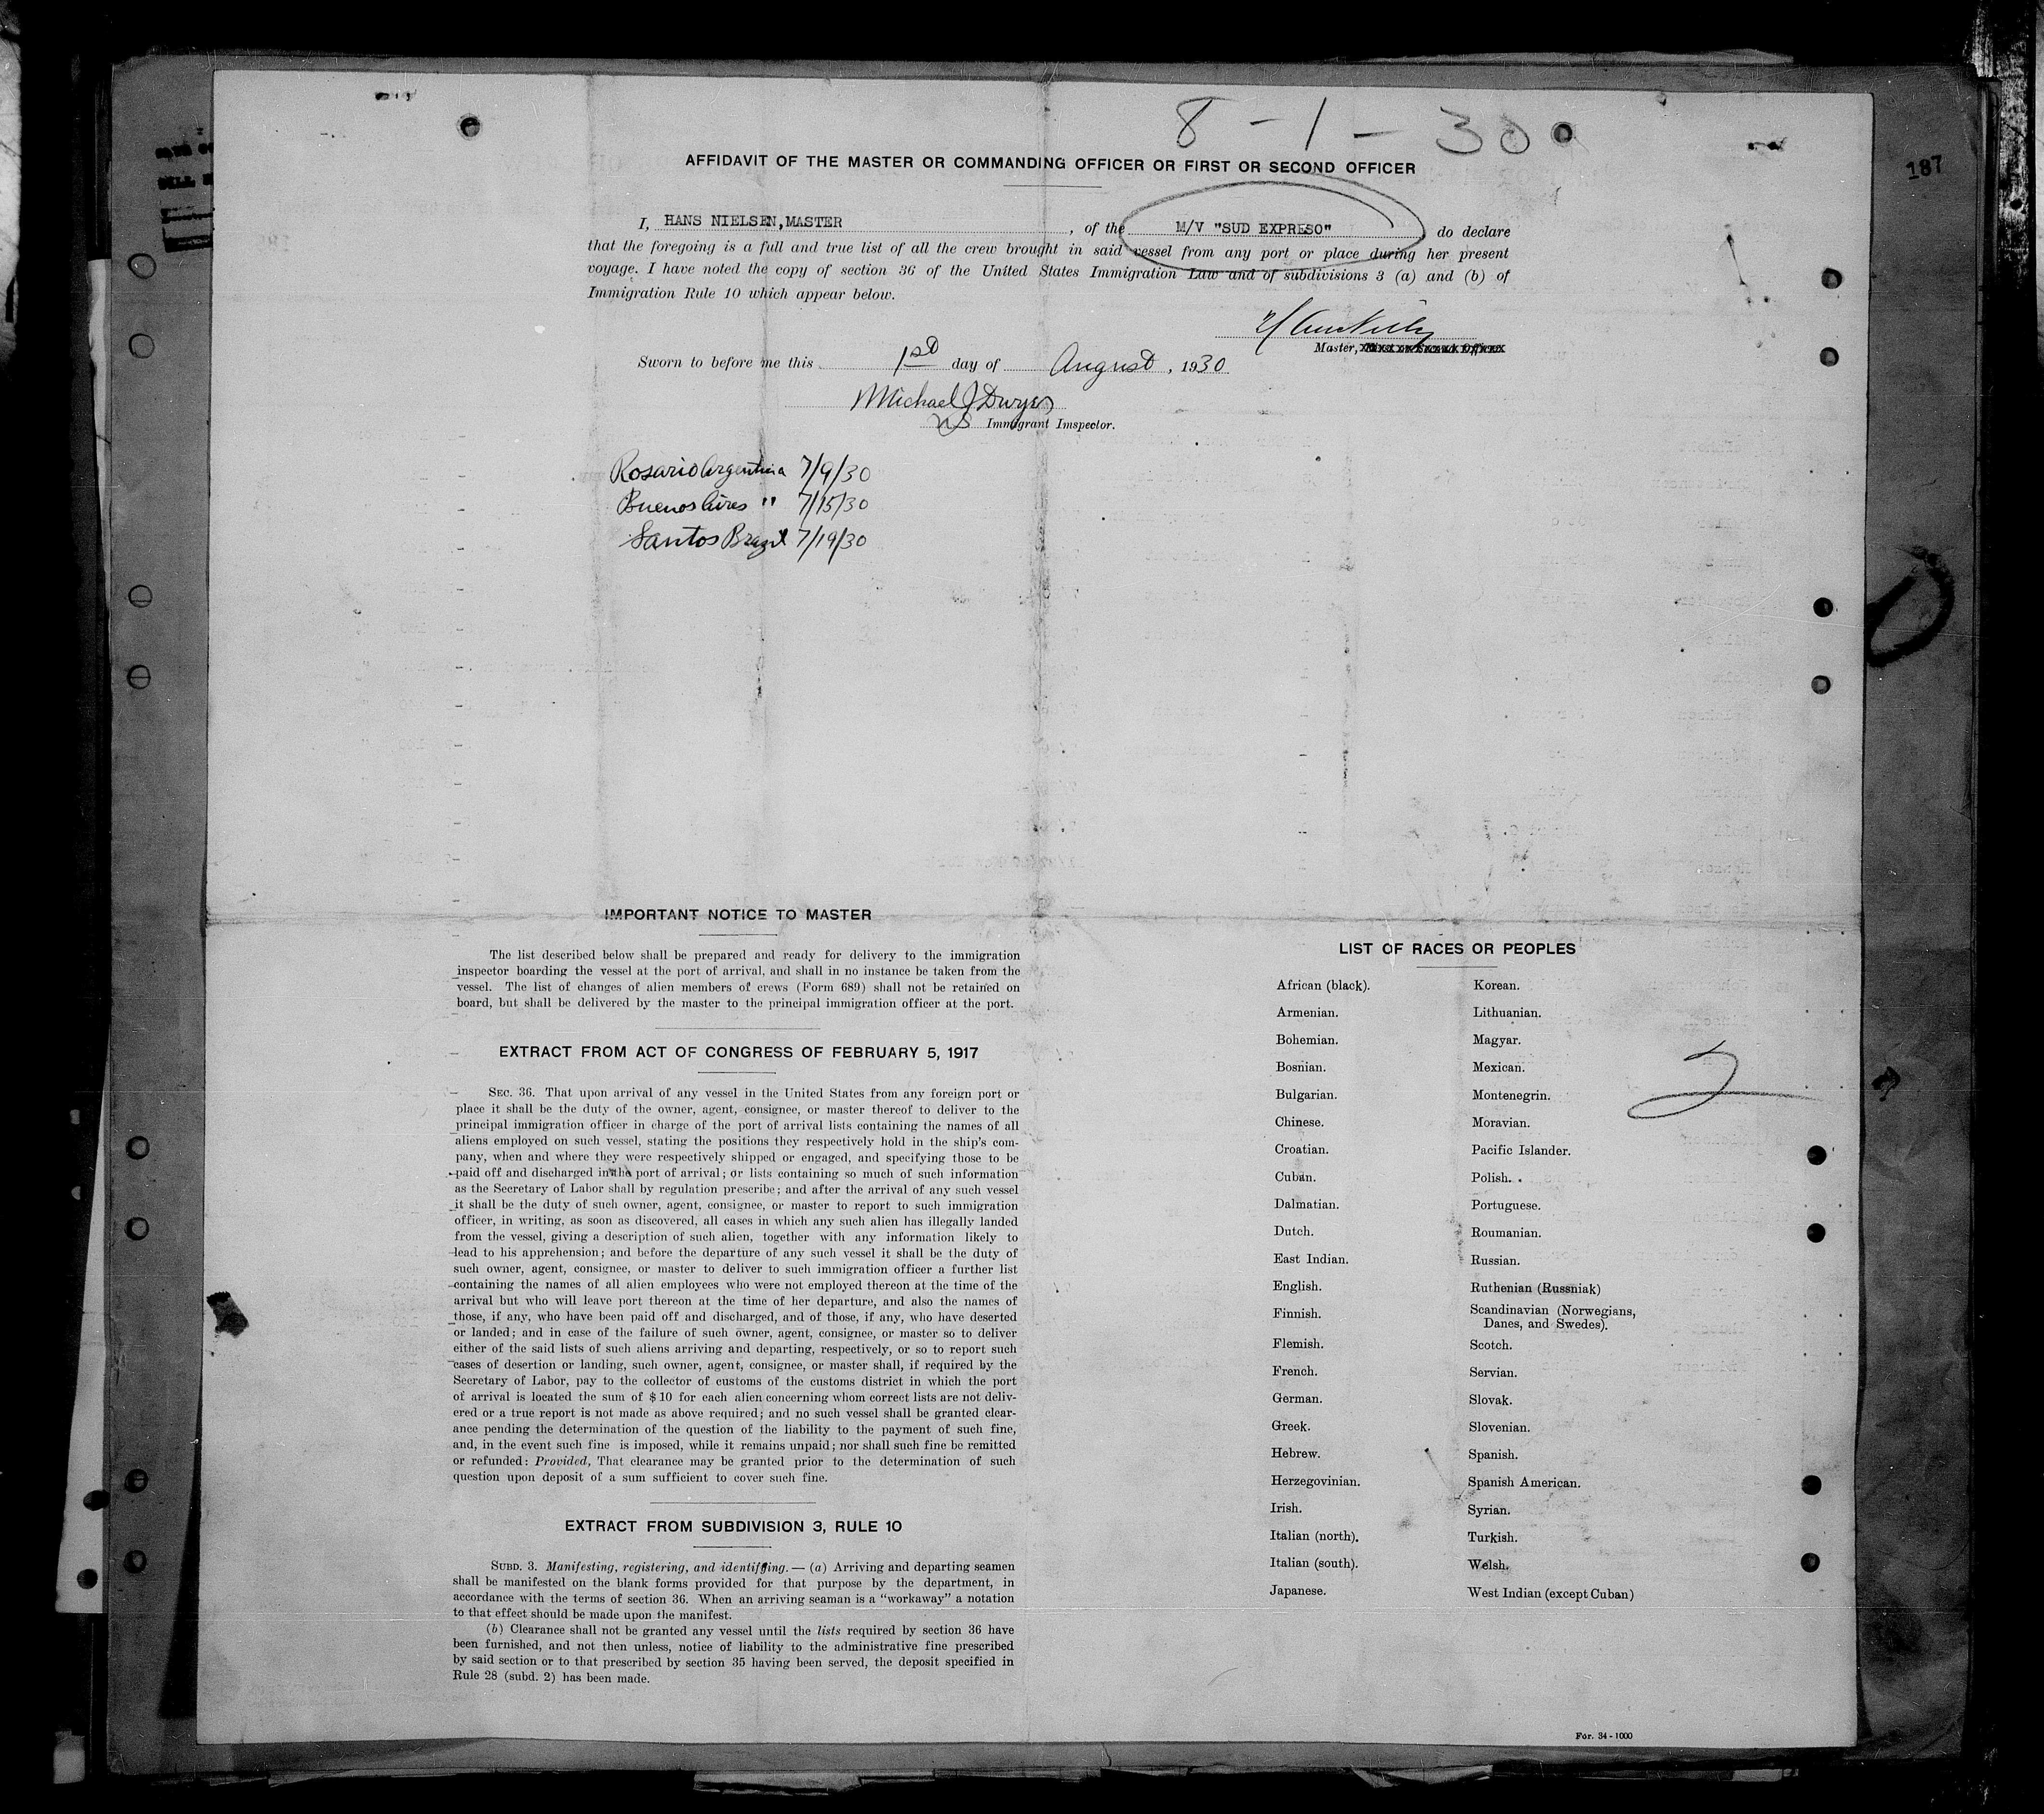 8-1-30
187
AFFIDAVIT OF THE MASTER OR COMMANDING OFFICER OR FIRST OR SECOND OFFICER
I, HANS NIELSEN,MASTER , of the M/V "SUD EXPRESO" do declare
that the foregoing is a full and true list of all the crew brought in said vessel from any port or place during her present
voyage. I have noted the copy of section 36 of the United States Immigration Law and of subdivisions 3 (a) and (b) of
Immigration Rule 10 which appear below.
Master,
Sworn to before me this 1st day of August , 1930
Michael J Dwyer
US Immigrant Imspector.
Rosario Argentina 7/9/30
Buenos Aires " 7/15/30
Santos Brazil 7/19/30
IMPORTANT NOTICE TO MASTER
The list described below shall be prepared and ready for delivery to the immigration
inspector boarding the vessel at the port of arrival, and shall in no instance be taken from the
vessel. The list of changes of alien members of crews (Form 689) shall not be retained on
board, but shall be delivered by the master to the principal immigration officer at the port.
EXTRACT FROM ACT OF CONGRESS OF FEBRUARY 5, 1917
SEC. 36. That upon arrival of any vessel in the United States from any foreign port or
place it shall be the duty of the owner, agent, consignee, or master thereof to deliver to the
principal immigration officer in charge of the port of arrival lists containing the names of all
aliens employed on such vessel, stating the positions they respectively hold in the ship's com-
pany, when and where they were respectively shipped or engaged, and specifying those to be
paid off and discharged in the port of arrival; or lists containing so much of such information
as the Secretary of Labor shall by regulation prescribe; and after the arrival of any such vessel
it shall be the duty of such owner, agent, consignee, or master to report to such immigration
officer, in writing, as soon as discovered, all cases in which any such alien has illegally landed
from the vessel, giving a description of such alien, together with any information likely to
lead to his apprehension; and before the departure of any such vessel it shall be the duty of
such owner, agent, consignee, or master to deliver to such immigration officer a further list
containing the names of all alien employees who were not employed thereon at the time of the
arrival but who will leave port thereon at the time of her departure, and also the names of
those, if any, who have been paid off and discharged, and of those, if any, who have deserted
or landed; and in case of the failure of such owner, agent, consignee, or master so to deliver
either of the said lists of such aliens arriving and departing, respectively, or so to report such
cases of desertion or landing, such owner, agent, consignee, or master shall, if required by the
Secretary of Labor, pay to the collector of customs of the customs district in which the port
of arrival is located the sum of $10 for each alien concerning whom correct lists are not deliv-
ered or a true report is not made as above required; and no such vessel shall be granted clear-
ance pending the determination of the question of the liability to the payment of such fine,
and, in the event such fine is imposed, while it remains unpaid; nor shall such fine be remitted
or refunded: Provided, That clearance may be granted prior to the determination of such
question upon deposit of a sum sufficient to cover such fine.
EXTRACT FROM SUBDIVISION 3, RULE 10
SUBD. 3. Manifesting, registering, and identifying. — (a) Arriving and departing seamen
shall be manifested on the blank forms provided for that purpose by the department, in
accordance with the terms of section 36. When an arriving seaman is a "workaway" a notation
to that effect should be made upon the manifest.
(b) Clearance shall not be granted any vessel until the lists required by section 36 have
been furnished, and not then unless, notice of liability to the administrative fine prescribed
by said section or to that prescribed by section 35 having been served, the deposit specified in
Rule 28 (subd. 2) has been made.
LIST OF RACES OR PEOPLES
African (black).
Armenian.
Bohemian.
Bosnian.
Bulgarian.
Chinese.
Croatian.
Cuban.
Dalmatian.
Dutch.
East Indian.
English.
Finnish.
Flemish.
French.
German.
Greek.
Hebrew.
Herzegovinian.
Irish.
Italian (north).
Italian (south).
Japanese.
Korean.
Lithuanian.
Magyar.
Mexican.
Montenegrin.
Moravian.
Pacific Islander.
Polish.
Portuguese.
Roumanian.
Russian.
Ruthenian (Russniak)
Scandinavian (Norwegians,
Danes, and Swedes).
Scotch.
Servian.
Slovak.
Slovenian.
Spanish.
Spanish American.
Syrian.
Turkish.
Welsh.
West Indian (except Cuban)
2
For. 34-1000